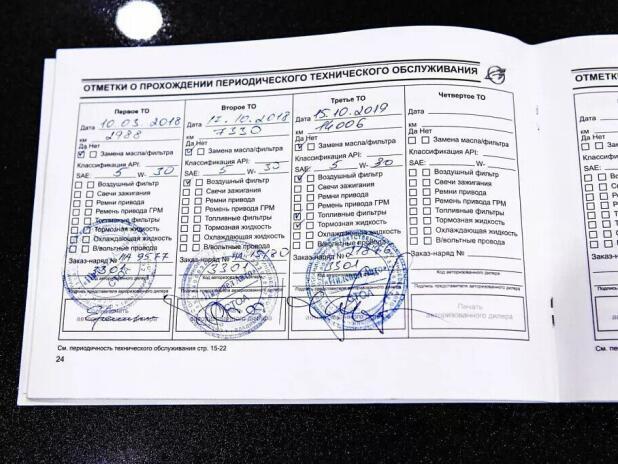 ОТМЕТКИ О ПРОХОЖДЕНИИ ПЕРИОДИЧЕСКОГО ТЕХНИЧЕСКОГО ОБСЛУЖИВАНИЯ
Первое ТО
Дата 10.03.2018
км 2988
Да Нет
Замена масла/фильтра
Классификация API:
SAE: 5 W- 30
Воздушный фильтр
Свечи зажигания
Ремни привода
Ремень привода ГРМ
Топливные фильтры
Тормозная жидкость
Охлаждающая жидкость
В/вольтные провода
Заказ-наряд № НА 9577
3301
Второе ТО
Дата 17.10.2018
км 7330
Да Нет
Замена масла/фильтра
Классификация API:
SAE: 5 W- 30
Воздушный фильтр
Свечи зажигания
Ремни привода
Ремень привода ГРМ
Топливные фильтры
Тормозная жидкость
Охлаждающая жидкость
В/вольтные провода
Заказ-наряд №
3301
Третье ТО
Дата 15.10.2019
км 14006
Да Нет
Замена масла/фильтра
Классификация API:
SAE: 5 W- 30
Воздушный фильтр
Свечи зажигания
Ремни привода
Ремень привода ГРМ
Топливные фильтры
Тормозная жидкость
Охлаждающая жидкость
В/вольтные провода
Заказ-наряд №
3301
Код авторизованного дилера
Четвертое ТО
Дата
км
Да Нет
Замена масла/фильтра
Классификация API:
SAE: W-
Воздушный фильтр
Свечи зажигания
Ремни привода
Ремень привода ГРМ
Топливные фильтры
Тормозная жидкость
Охлаждающая жидкость
В/вольтные провода
Заказ-наряд №
Код авторизованного дилера
Подпись представителя авторизованного дилера
Печать
авторизованного дилера
См. периодичность технического обслуживания стр. 15-22
24
ОТМЕТКИ
Дата
км
Да Нет
SAE:
Заказ-наряд
Подпись
См. пери